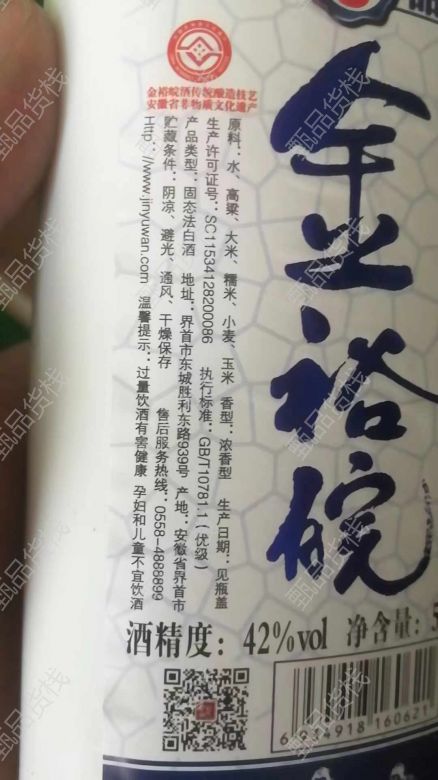 金裕皖酒传统酿造技艺
安徽省非物质文化遗产
金裕皖
原料：水、高粱、大米、糯米、小麦、玉米 香型：浓香型 生产日期：见瓶盖
生产许可证号：SC11534128200086 执行标准：GB/T10781.1（优级）
产品类型：固态法白酒 地址：界首市东城胜利东路939号 产地：安徽省界首市
贮藏条件：阴凉、避光、通风、干燥保存 售后服务热线：0558-4888899
Http：//www.jinyuwan.com 温馨提示：过量饮酒有害健康 孕妇和儿童不宜饮酒
酒精度：42%vol 净含量：
甄品货栈